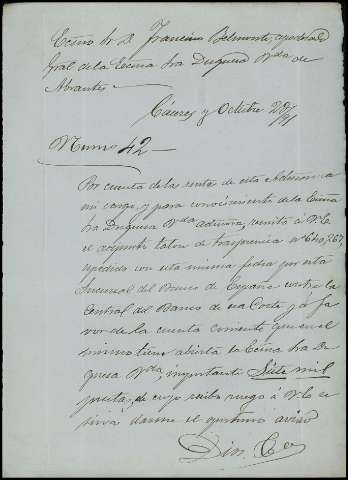 Ecmo Sr. D. Francisco Belmonte, apoderado
gral de la Ecma Sra Duquesa Vda de
Abrantes
Cáceres y Octubre 20/91
Numo 42
Por cuenta de las rentas de esta Admon a
mi cargo, y para conocimiento de la Ecma
Sra Duquesa Vda administra, remito á V.E.
el adjunto talon de trasferencia nº 267,
espedido con esta misma fecha por esta
Sucursal del Banco de España contra la
Central del Banco de esa Corte y á fa
vor de la cuenta corriente que en el
mismo tiene abierta la Ecma Sra Du
quesa Vda, importante Siete mil
pesetas, de cuyo recibo ruego á V.E. se
sirva darme el oportuno aviso
Dios &a